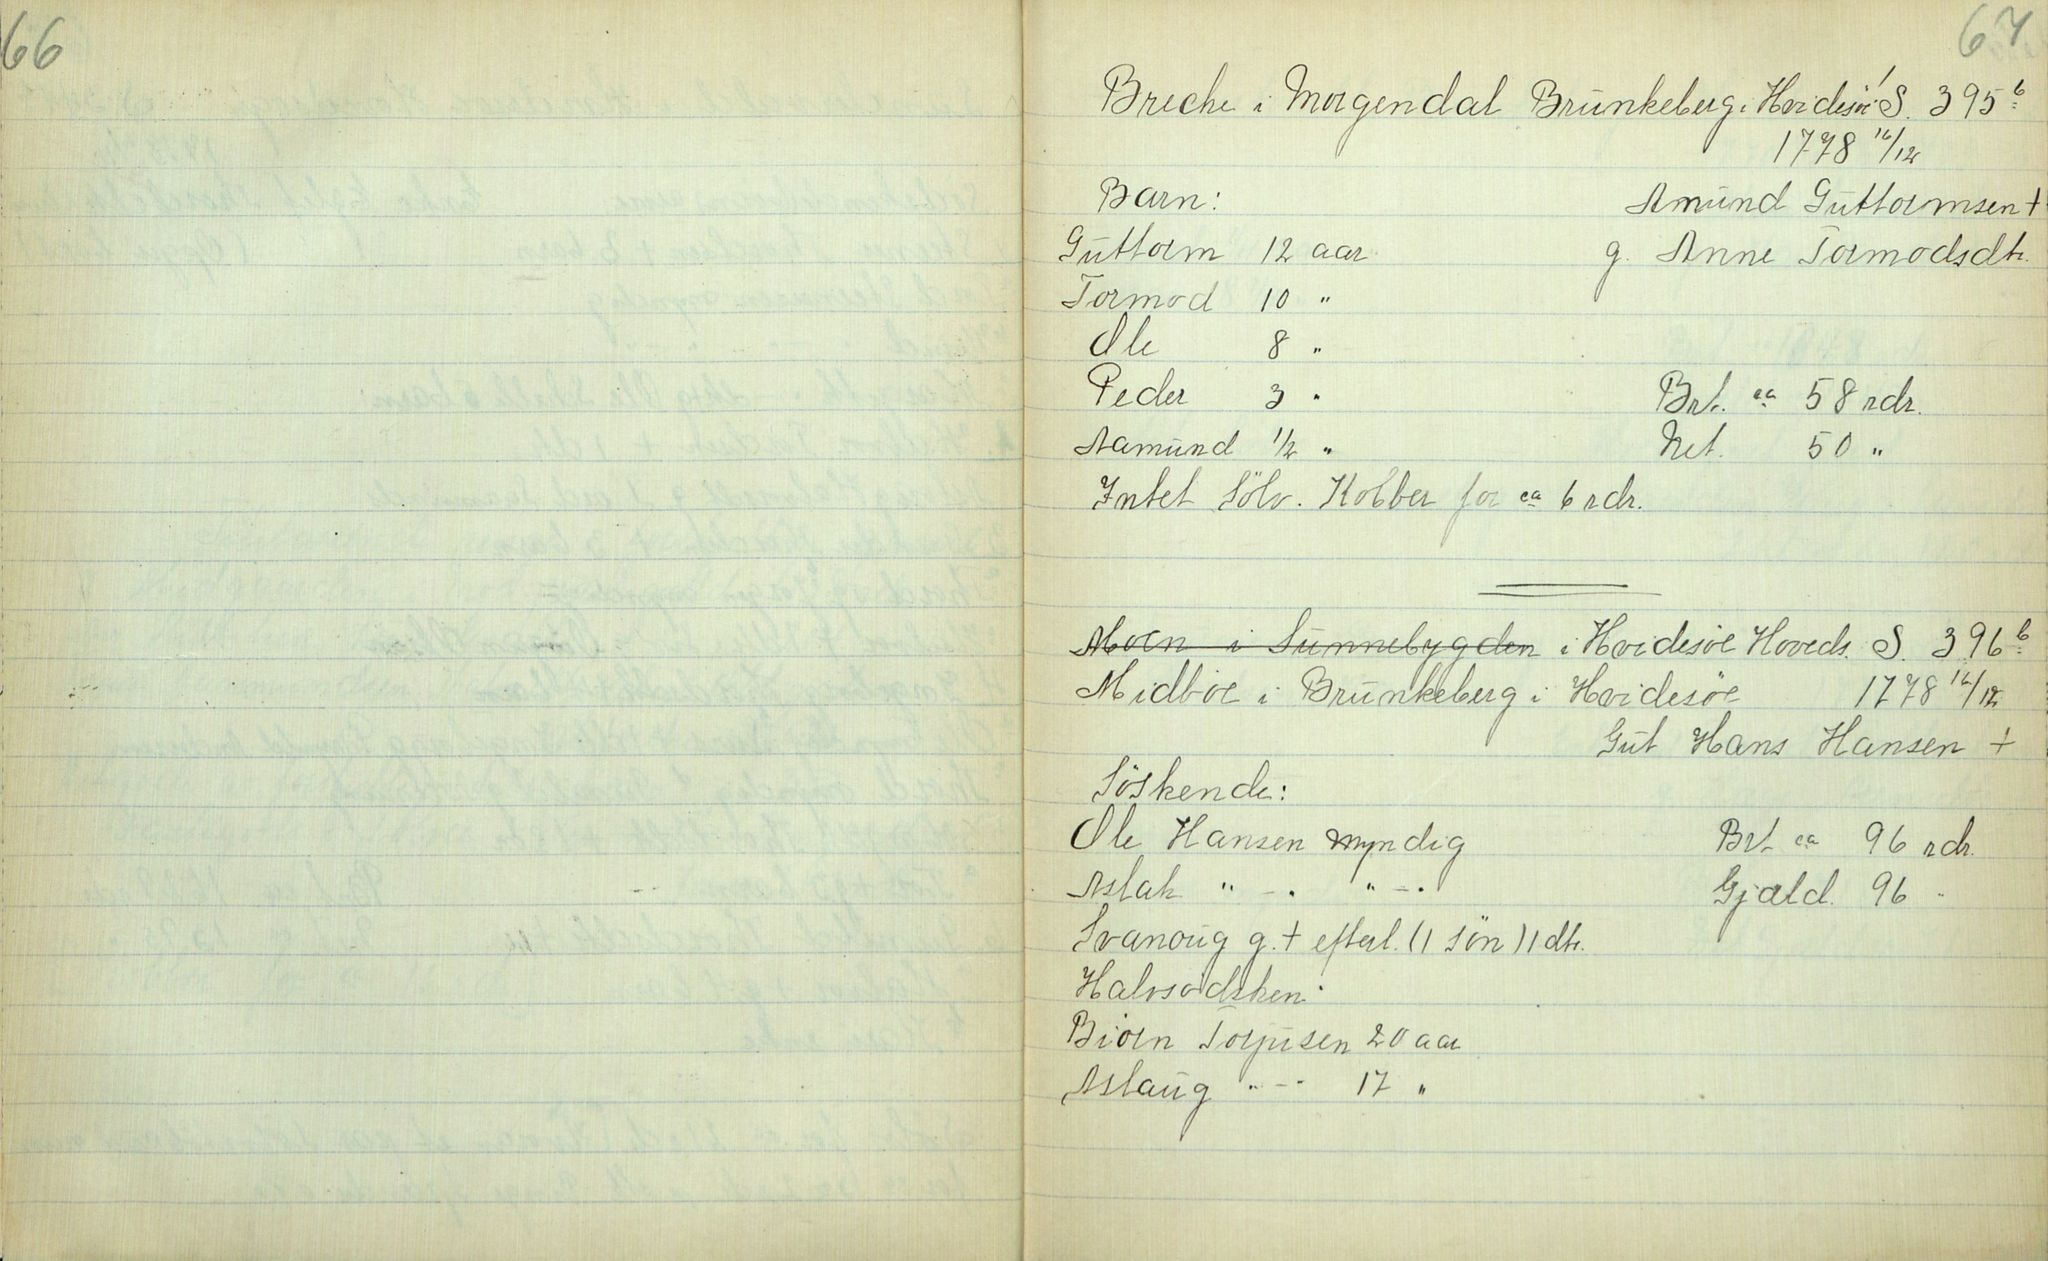 66
67
Breche i Morgendal Brunkeberg i Hvidesöe S. 395 b
1778 16/12
Barn: Amund Guttormsen +
Guttorm 12 aar g. Anne Tormodsdtr.
Tormod 10 "
Ole 8 "
Peder 3 " Brt. ca 58 rdr.
Aamund 1/2 " Net. 50 "
Intet Sölv. Kobber for ca 6 rdr.
Moen i Sunnebygden i Hvidesöe Hoveds. S. 396 b
Midböe i Brunkeberg i Hvidesöe 1778 16/12
Gut Hans Hansen +
Söskende:
Ole Hansen myndig Brt ca 96 rdr.
Aslak " - . " - . Gjæld. 96 "
Svanoug g. + efterl. (1 sön) 1 dtr.
Halvsödsken:
Biörn Torjusen 20 aar
Aslaug " - " 17 "